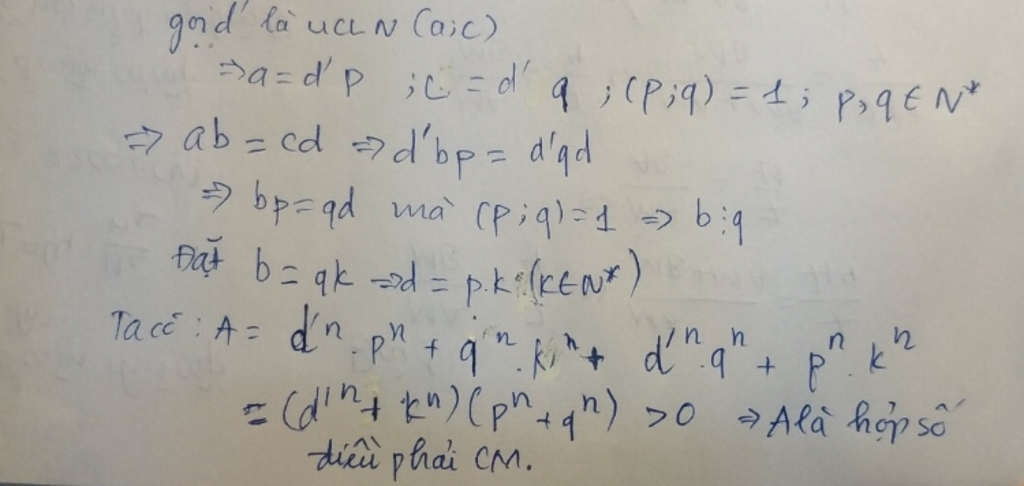 gọi d' là ƯCLN (a;c)
⇒ a = d' p ; c = d' q ; (p;q) = 1 ; p,q ∈ N*
⇒ ab = cd ⇒ d'bp = d'qd
⇒ bp = qd mà (p;q) = 1 ⇒ b ⋮ q
Đặt b = qk ⇒ d = p.k (k ∈ N*)
Ta có : A = d'ⁿ . pⁿ + qⁿ . kⁿ + d'ⁿ . qⁿ + pⁿ . kⁿ
= (d'ⁿ + kⁿ)(pⁿ + qⁿ) > 0 ⇒ A là hợp số
điều phải CM.